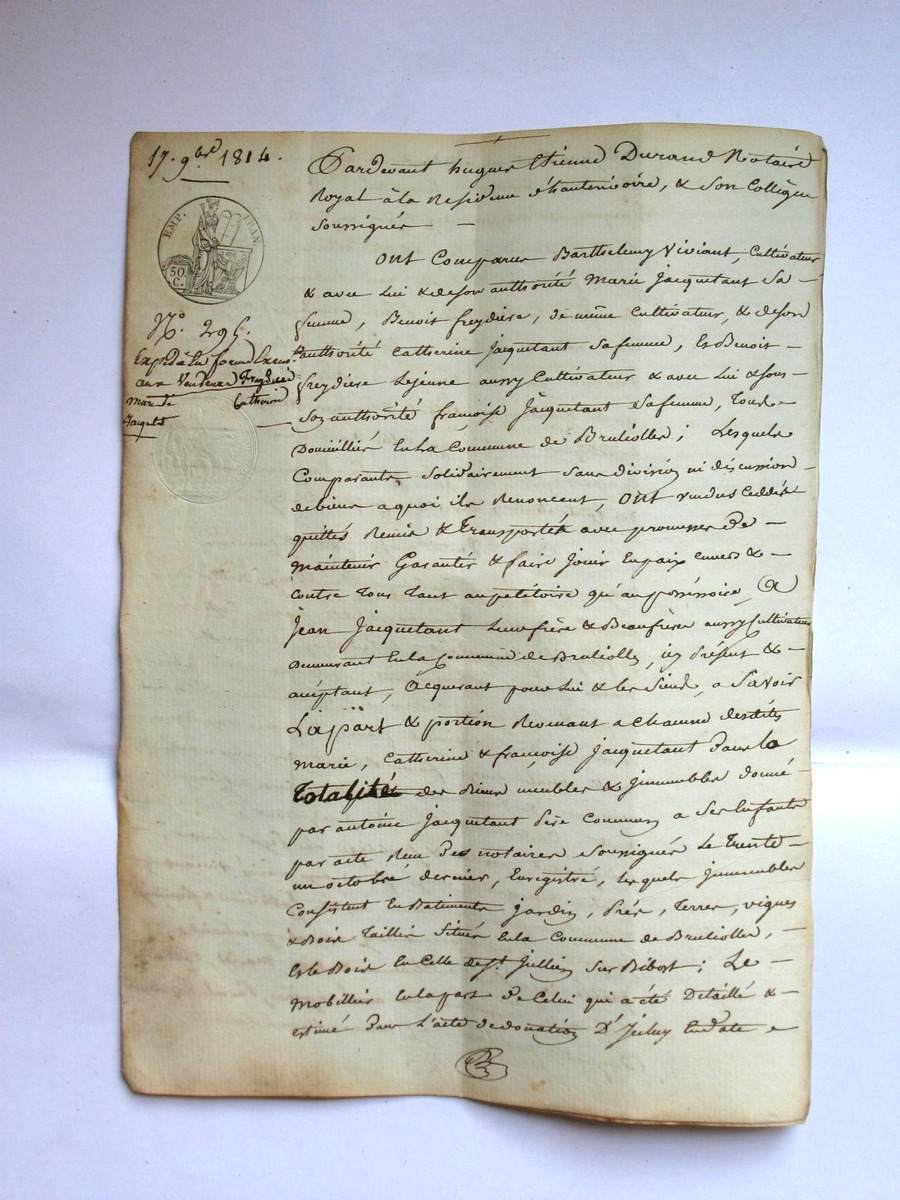 17. 9bre 1814.
EMP. FRAN.
50 C.
No. 295.
Expédié en forme
aux Vendeurs Freydière
Mari de Catherine
Jaquetd
Pardevant hugues Etienne Durand Notaire
Royal à la Residence d'hauterivoire, & son Collègue
Soussignés —
Ont Comparus Barthelemy Viviant, Cultivateur
& avec Lui & de son authorité Marie Jacquetant Sa
femme, Benoit freydière, de même Cultivateur, & de son
authorité Catherine Jacquetant sa femme, Et Benoit
freydière Lejeune aussy Cultivateur & avec Lui & sous
Son authorité françoise Jacquetant sa femme, Tous
Domicilliés En La Commune de Bruliolles; Lesquels
Comparants Solidairement Sans division ni discussion
de biens a quoi ils Renoncent, Ont vendus Ceddés
quittés Remis & Transportés avec promesse de
Maintenir Garantir & faire Jouir En paix envers &
contre Tous Tant au petitoire qu'au possessoire, A
Jean Jacquetant Leur frère & Beaufrère aussy Cultivateur
Demeurant En la Commune de Brulioles, icy présent &
acceptant, Acquerant pour Lui & les Siens, a Savoir
La part & portion Revenant a Chacune desdites
Marie, Catherine & françoise Jacquetant Dans la
Totalité des Biens meubles & Immeubles donnés
par antoine Jacquetant Père Commun a Ses Enfants
par acte Reçu des notaires Soussignés Le Trente
un octobre dernier, Enregistré, Lesquels Immeubles
Consistent En Batiments Jardin, Prés, Terres, vignes
& Bois Taillis Situés En la Commune de Brulioles,
Et le Bois En Celle de St. Jullien Sur Bibost; Le
Mobillier En la part de Celui qui a été Detaillé &
estimé Dans L'acte de donation D'Jceluy En date